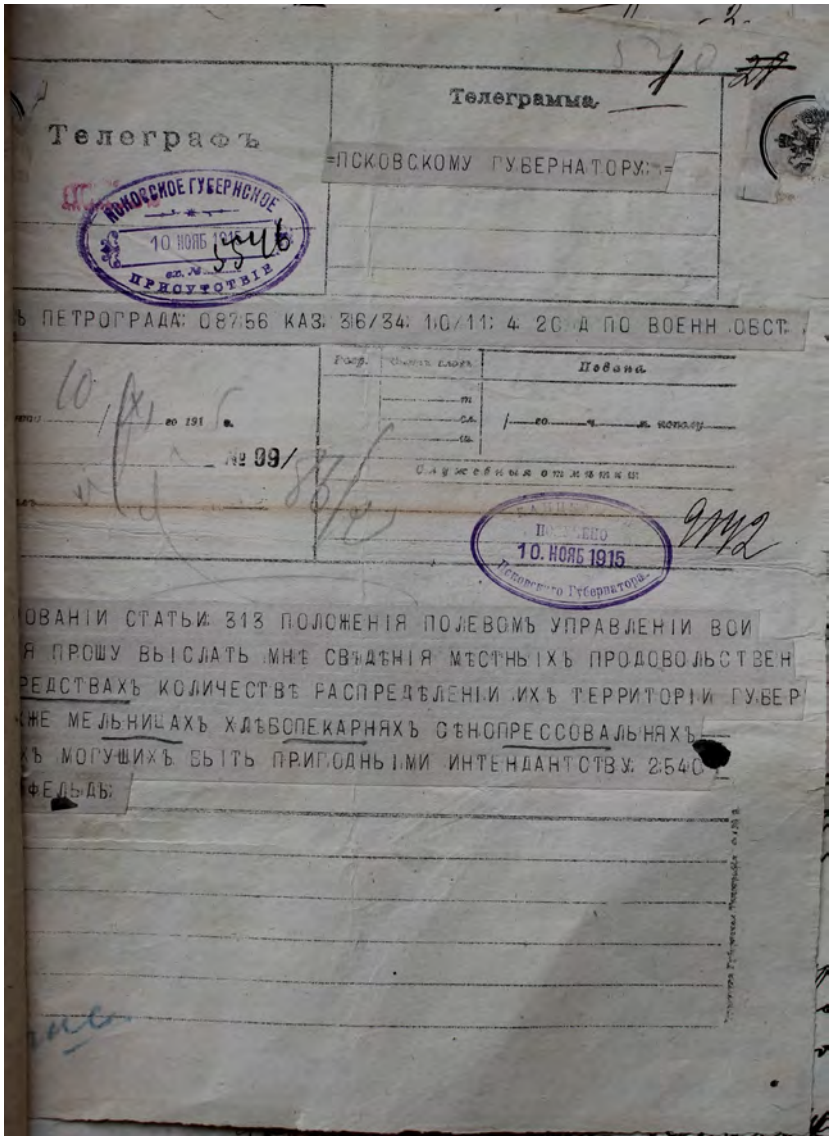 - 2.
5740 1 28
Телеграмма
Телеграфъ
=ПСКОВСКОМУ ГУБЕРНАТОРУ:=
ПСКОВСКОЕ ГУБЕРНСКОЕ
10 НОЯБ 1915
вх. № 5546
ПРИСУТСТВІЕ
Ъ ПЕТРОГРАДА: 087:56 КАЗ: 316/34: 10/11: 4 20 Д ПО ВОЕНН ОБСТ:
Разр. Подана
10/XI го 1915 г.
т
сл.
/ го ч. м. пополу
№ 99/
Служебныя отмѣтки
10. НОЯБ 1915
Псковского Губернатора.
ОВАНІИ СТАТЬИ: 313 ПОЛОЖЕНІЯ ПОЛЕВОМЪ УПРАВЛЕНІИ ВОИ
Я ПРОШУ ВЫСЛАТЬ МНЕ СВѢДѢНІЯ МѢСТНЫХЪ ПРОДОВОЛЬСТВЕН
РЕДСТВАХЪ КОЛИЧЕСТВѢ РАСПРЕДѢЛЕНІИ ИХЪ ТЕРРИТОРІИ ГУБЕР
ЖЕ МЕЛЬНИЦАХЪ ХЛѢБОПЕКАРНЯХЪ СѢНОПРЕССОВАЛЬНЯХЪ
ХЪ МОГУШИХЪ БЫТЬ ПРИГОДНЫМИ ИНТЕНДАНТСТВУ: 2540
ФЕЛЬДЪ: